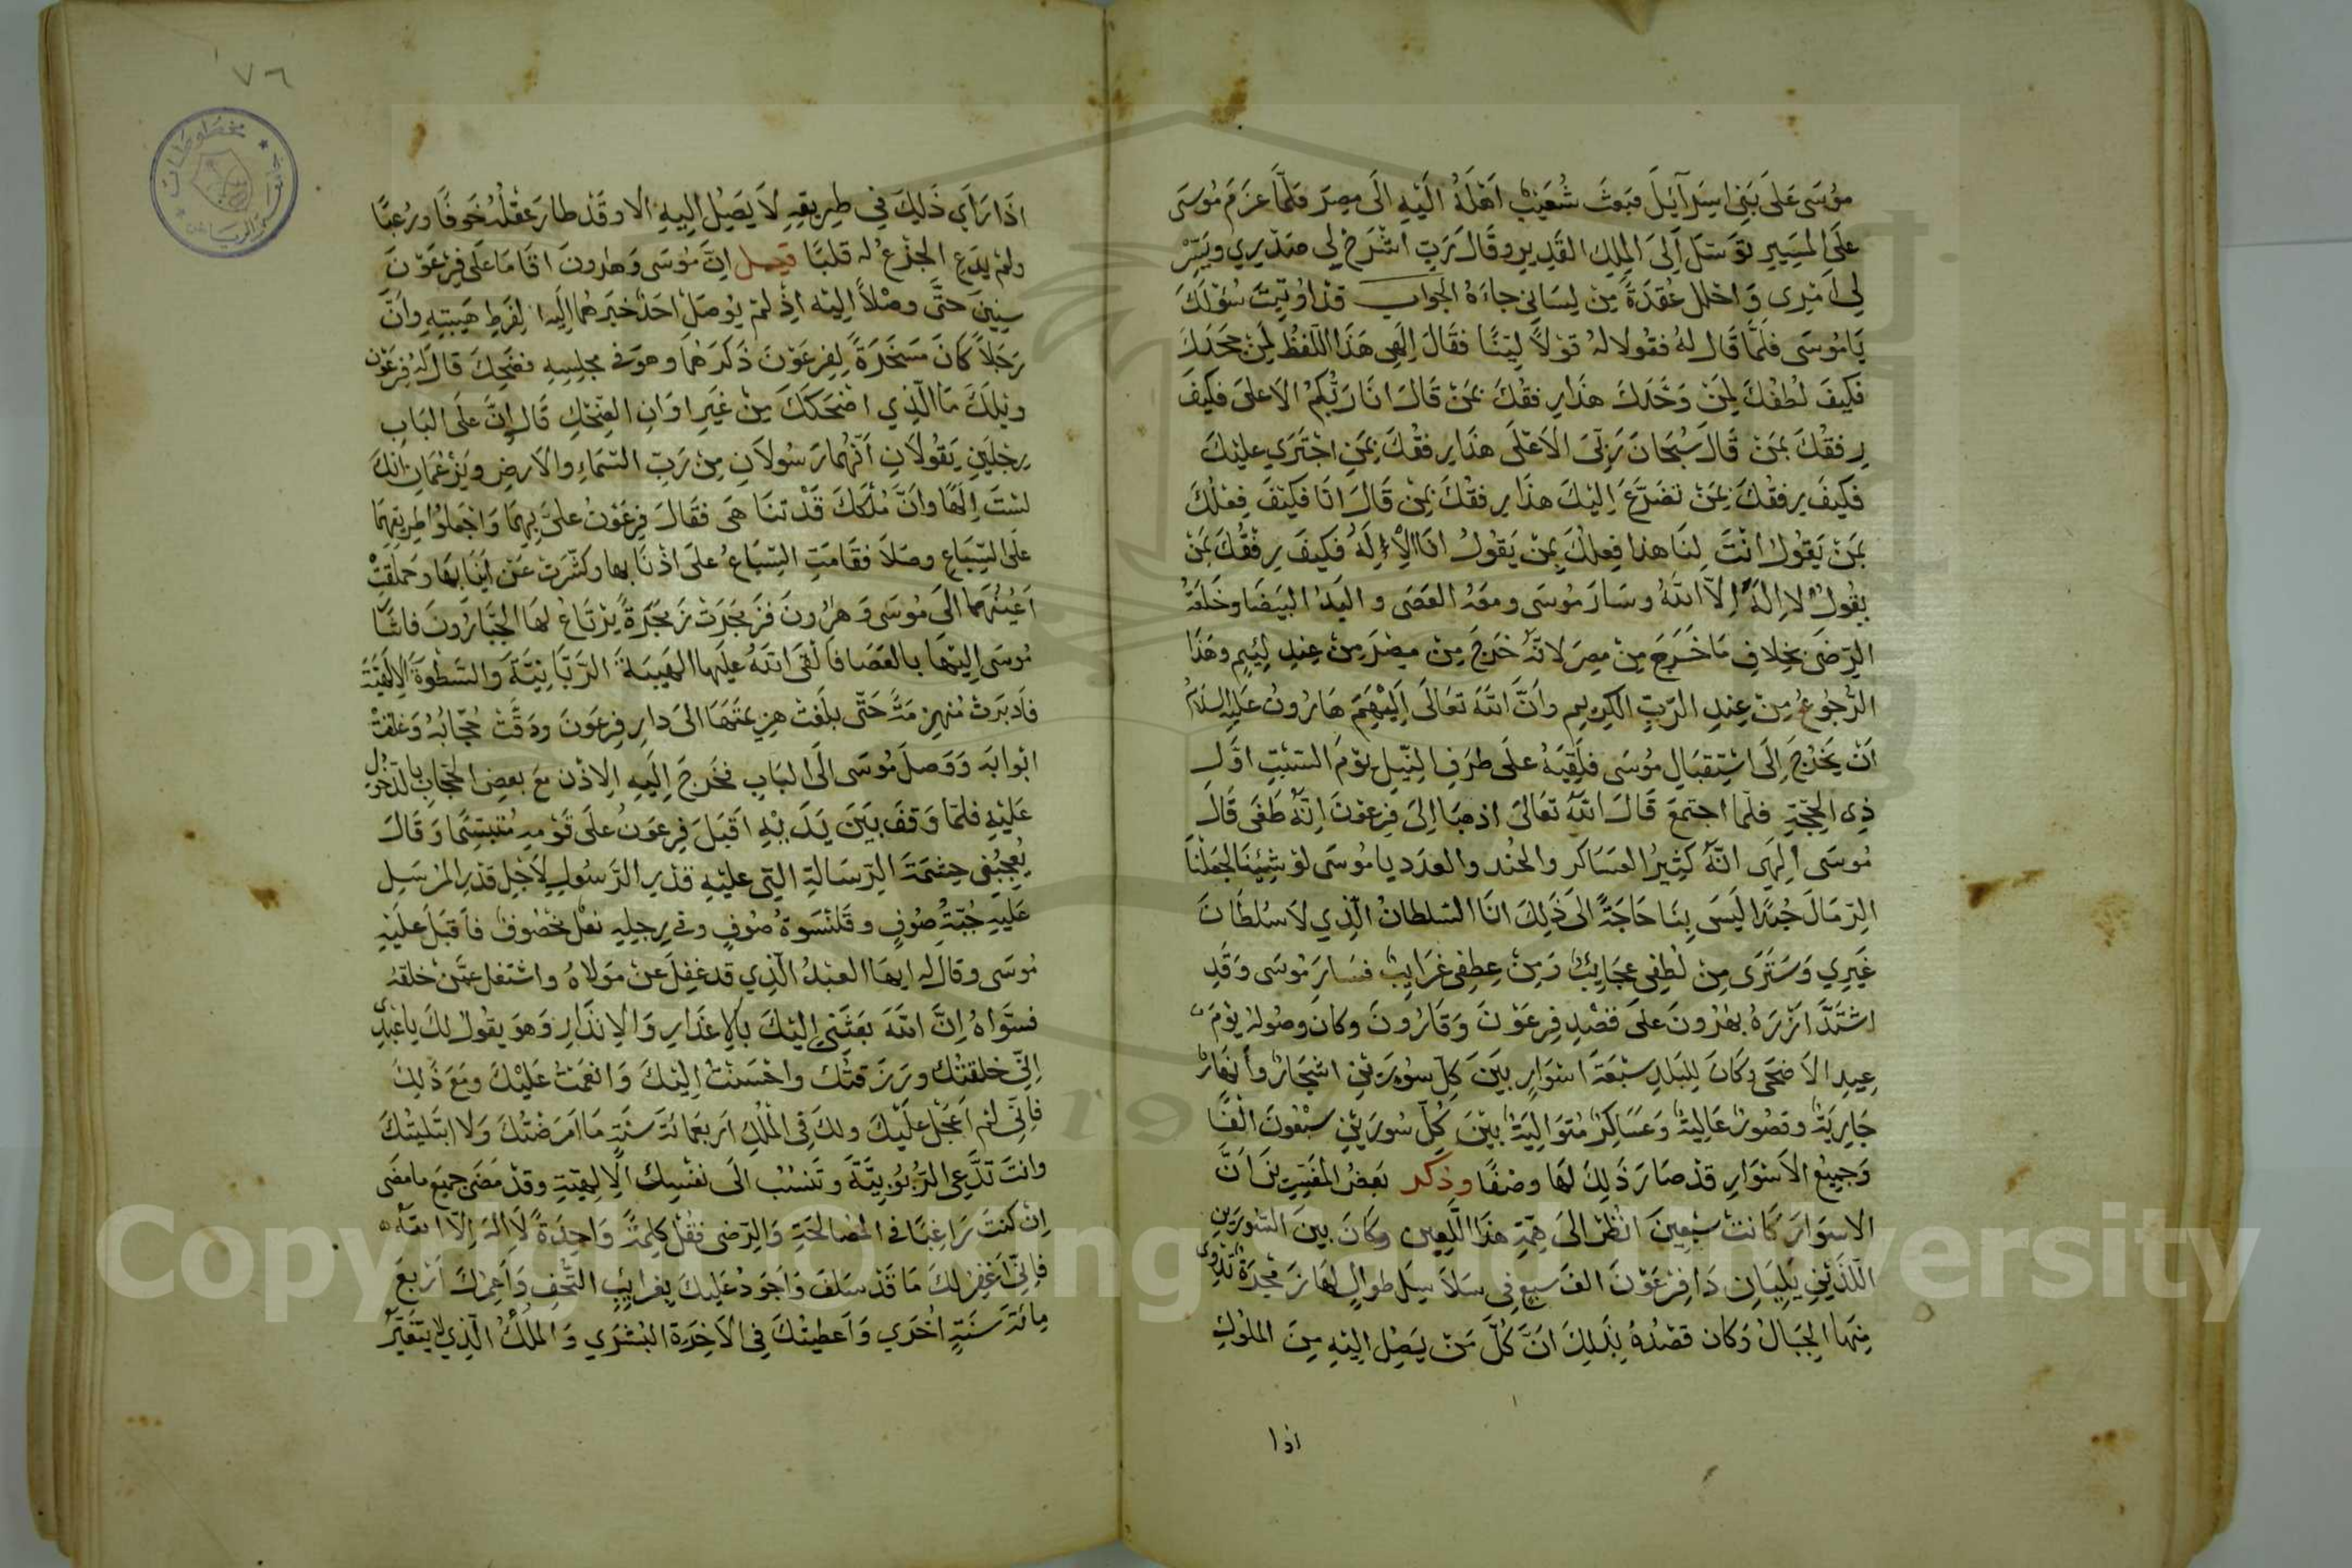 موسى على بني اسرآيل فبعث شعيب اهله اليه الى مصر فلما عزم موسى
على المسير توسل الى الملك القدير وقال رب اشرح لي صدري ويسر
لي امري واحلل عقدة من لساني جاءه الجواب قد اوتيت سؤلك
يا موسى فلما قال له فقولا له قولا لينا فقال الهي هذا اللفظ لمن جحدك
فكيف لطفك لمن وحدك هذا رفقك بمن قال انا ربكم الاعلى فكيف
رفقك بمن قال سبحان ربي الاعلى هذا رفقك بمن اجترى عليك
فكيف رفقك بمن تضرع اليك هذا رفقك بمن قال انا فكيف فعلك
بمن يقول انت لنا هذا فعلك بمن يقول انا الاله فكيف رفقك بمن
يقول لا اله الا الله وسار موسى ومعه العصى واليد البيضا وخلعة
الرضى بخلاف ما خرج من مصر لانه خرج من مصر من عند لئيم وهذا
الرجوع من عند الرب الكريم وان الله تعالى الهم هارون عليه السلام
ان يخرج الى استقبال موسى فلقيه على طرف النيل يوم السبت اول
ذي الحجة فلما اجتمع قال الله تعالى اذهبا الى فرعون انه طغى قال
موسى الهي انه كثير العساكر والجند والعدد يا موسى لو شئنا لجعلنا
الرمال جندا ليس بنا حاجة الى ذلك انا السلطان الذي لا سلطان
غيري وسترى من لطفي عجايب ومن عطفي غرايب فسار موسى وقد
اشتد ازره بهرون على قصد فرعون وقارون وكان وصوله يوم
عيد الاضحى وكان للبلد سبعة اسوار بين كل سورين اشجار وانهار
جارية وقصور عالية وعساكر متوالية بين كل سورين سبعون الفا
وجميع الاسوار قد صار ذلك لها وصفا وذكر بعض المفسرين ان
الاسوار كانت سبعين انظر الى همة هذا اللعين وكان بين السورين
اللذين يليان دار فرعون الف سبع في سلاسل طوال لها زمجرة تدوي
منها الجبال وكان قصده بذلك ان كل من يصل اليه من الملوك
اذا
٧٦
اذا راي ذلك في طريقه لا يصل اليه الا وقد طار عقله خوفا ورعبا
ولم يدع الجزع له قلبا قيل ان موسى وهرون اقاما على فرعون
سنين حتى وصلا اليه اذ لم يوصل احد خبرهما اليه لفرط هيبته وان
رجلا كان مسخرة لفرعون ذكرهما وهو في مجلسه فضحك قال له فرعون
ويلك ما الذي اضحكك من غير اوان الضحك قال ان على الباب
رجلين يقولان انهما رسولان من رب السماء والارض ويزعمان انك
لست الها وان ملكك قد تناهى فقال فرعون علي بهما واجعلوا طريقهما
على السباع وصلا فقامت السباع على اذنابها وكشرت عن انيابها وحملقت
اعينهما الى موسى وهرون فزمجرت زمجرة يرتاع لها الجبارون فاشا
موسى اليها بالعصا فالقى الله عليها الهيبة الربانية والسطوة الالهية
فادبرت منهزمة حتى بلغت هزيمتها الى دار فرعون ودقت حجابه وغلقت
ابوابه ووصل موسى الى الباب فخرج اليه الاذن مع بعض الحجاب بالدخول
عليه فلما وقف بين يديه اقبل فرعون على قومه متبسما وقال
يعجبني حشمة الرسالة التي عليه قدير الرسول لاجل قدر المرسل
عليه جبة صوف وقلنسوة صوف وفي رجليه نعل مخصوف فاقبل عليه
موسى وقال له ايها العبد الذي قد غفل عن مولاه واشتغل عمن خلقه
فسواه ان الله بعثني اليك بالاعذار والانذار وهو يقول لك يا عبدي
اني خلقتك ورزقتك واحسنت اليك وانعمت عليك ومع ذلك
فاني لم اعجل عليك ولك في الملك اربعمائة سنة ما امرضتك ولا ابتليتك
وانت تدعي الربوبية وتنسب الى نفسك الالهية وقد مضى جميع ما مضى
ان كنت راغبا في المصالحة والرضى فقل كلمة واحدة لا اله الا الله
فاني اغفر لك ما قد سلف واجود عليك بغرايب التحف واعمرك اربع
مائة سنة اخرى واعطيتك في الاخرة البشرى والملك الذي لا يتغير
Copyright © King Saud University